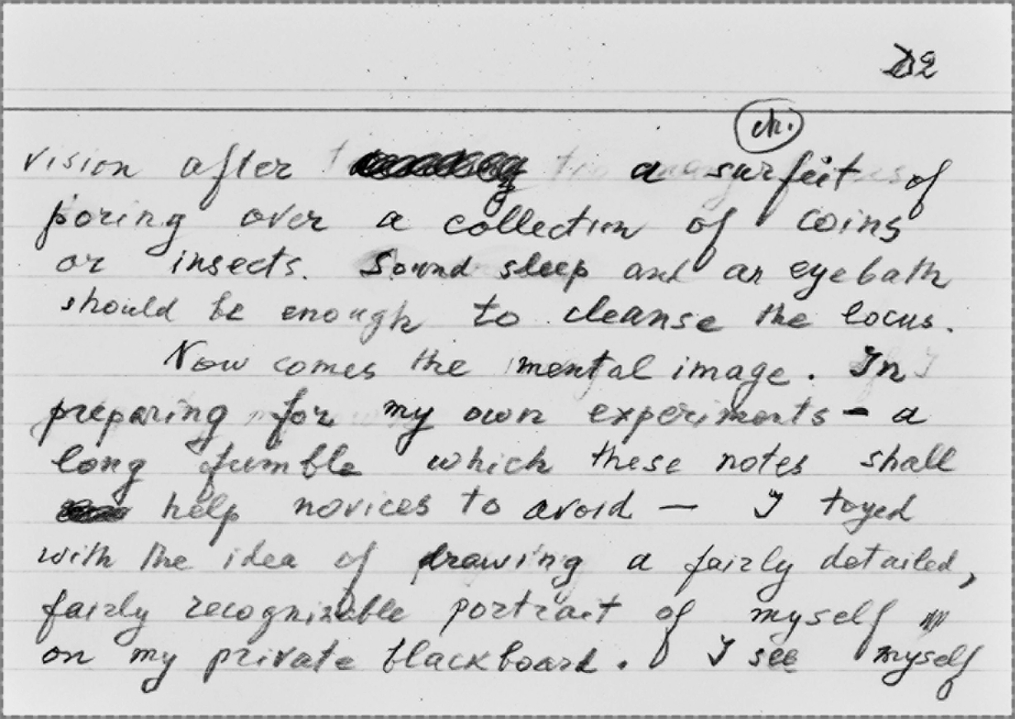 D2
ch.
vision after a surfeit of
poring over a collection of coins
or insects. Sound sleep and an eyebath
should be enough to cleanse the locus.
Now comes the mental image. In
preparing for my own experiments – a
long fumble which these notes shall
help novices to avoid — I toyed
with the idea of drawing a fairly detailed,
fairly recognizable portrait of myself
on my private blackboard. I see myself